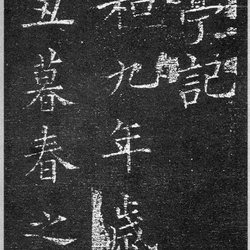 亭記
和九年歲
丑暮春之